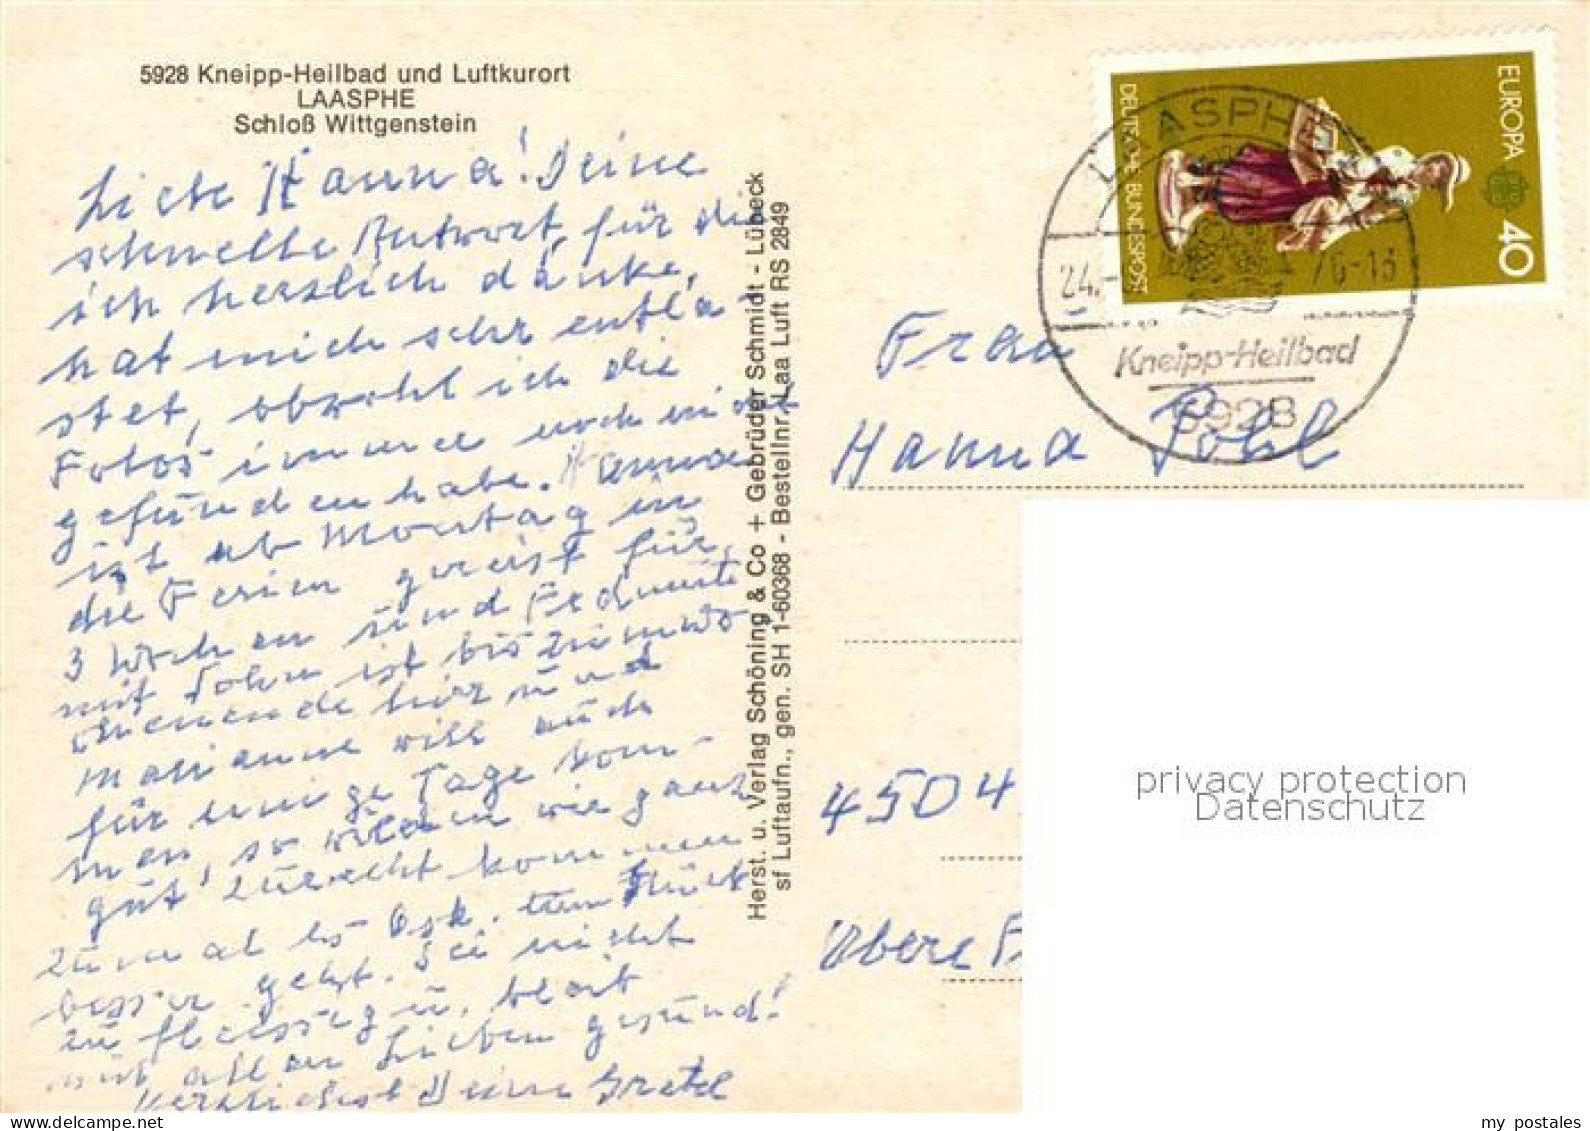 5928 Kneipp-Heilbad und Luftkurort
LAASPHE
Schloß Wittgenstein
Liebe Hanna! Deine
schnelle Antwort, für die
ich herzlich danke,
hat mich sehr entla
stet, obwohl ich die
Fotos immer noch nicht
gefunden habe. Hanna
ist ab Montag in
die Ferien gereist für
3 Wochen und
mit Sohn ist bis zum Wo
chenende hier und
Marianne will auch
für einige Tage kom-
men, so werden wir ganz
gut zurecht kommen
zumal es
besser geht. Sei nicht
zu fleissig u. bleib
mit allen Lieben gesund!
Herzlichst Deine Gretel
Herst. u. Verlag Schöning & Co + Gebrüder Schmidt - Lübeck
sf Luftaufn., gen. SH 1-60368 - Bestellnr. Laa Luft RS 2849
DEUTSCHE BUNDESPOST
EUROPA
40
LAASPHE
24. 76-13
Kneipp-Heilbad
5928
Frau
Hanna Pohl
4504
Obere
privacy protection
Datenschutz
my postales